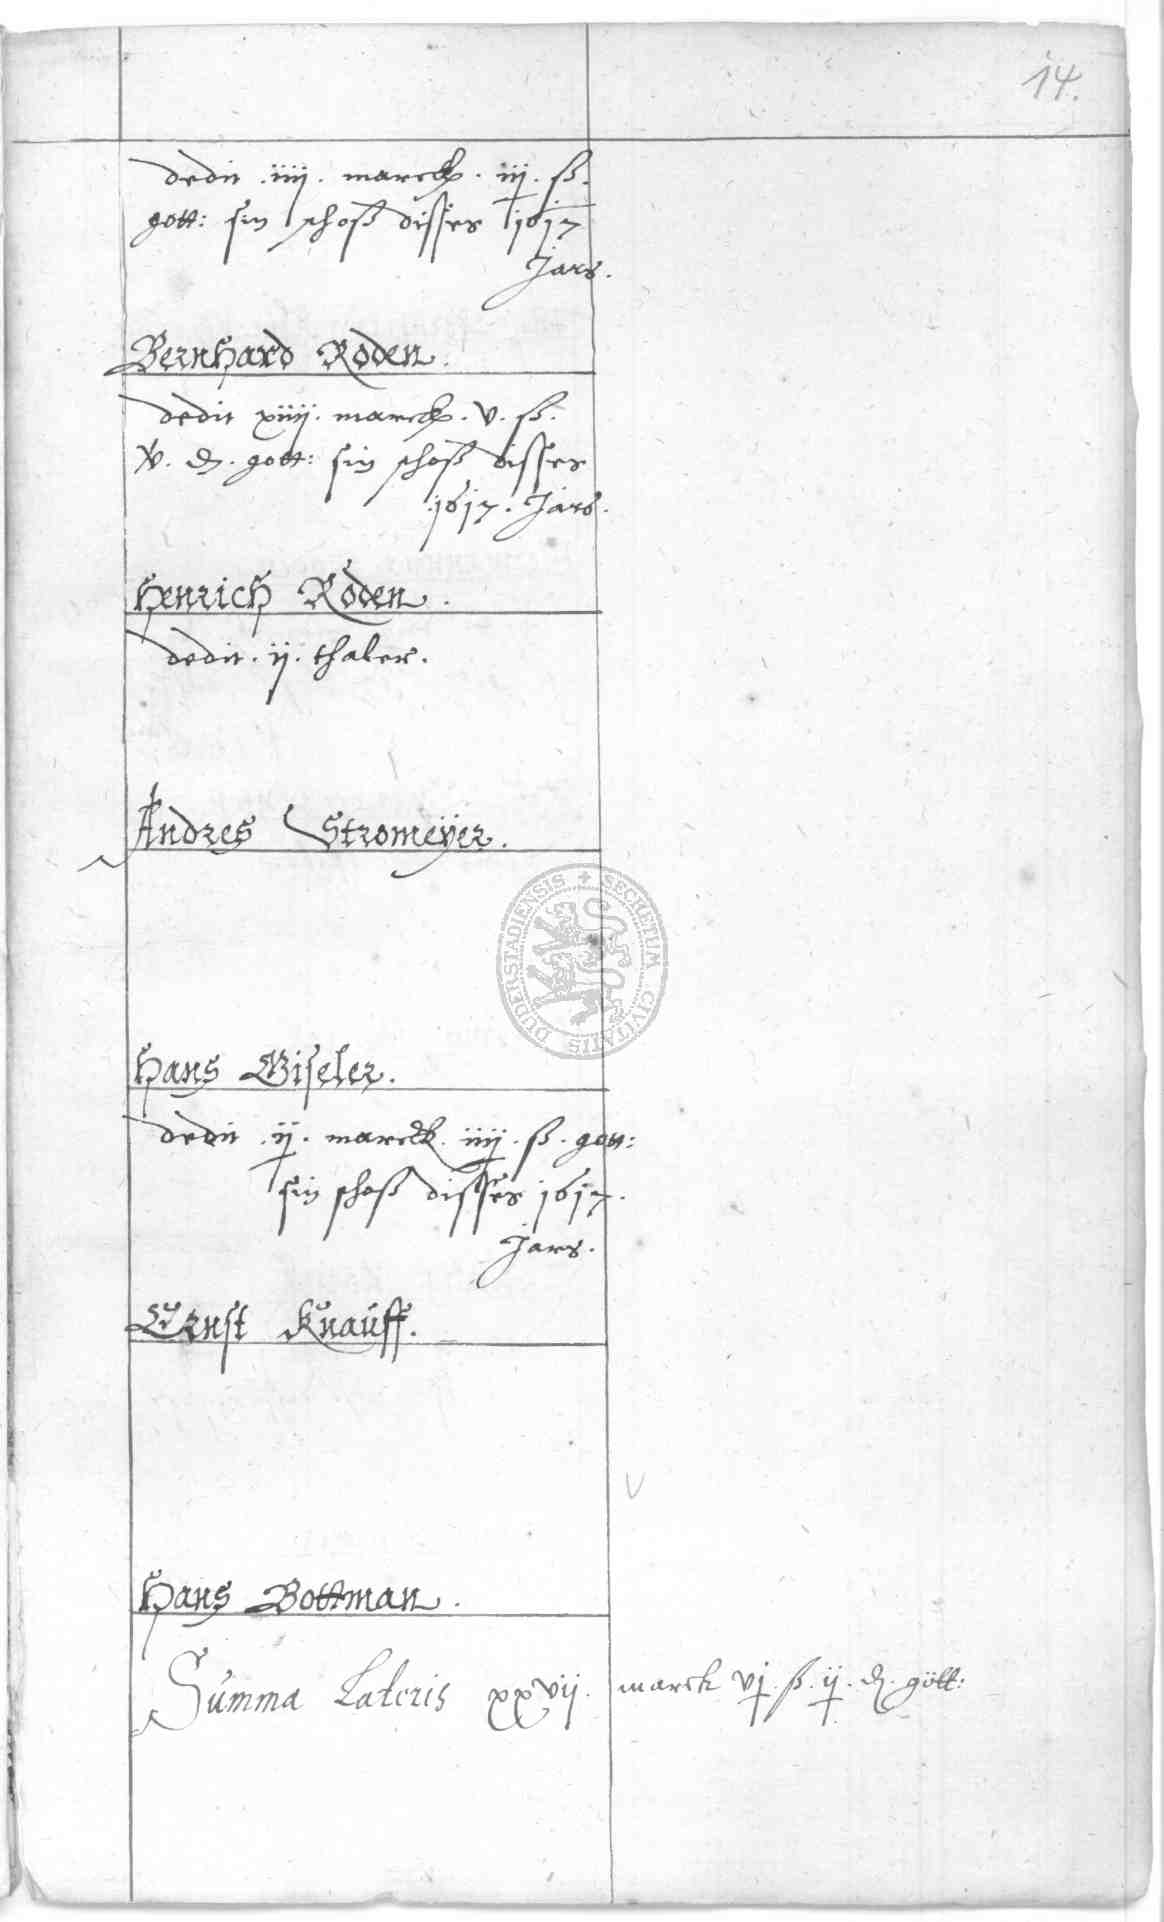 14.
dedit .iiij. marck. iij. ß.
gott: sin schoß disses 1617
Jars.
Bernhard Roden.
dedit xiiij. marck. v. ß.
v. d. gott: sin schoß disses
1617. Jars.
Henrich Roden.
dedit. ij. thaler.
Andres Stromeÿer.
SECRETUM CIVITATIS DUDERSTADIENSIS
Hans Giseler.
dedit .ij. marck. iiij. ß. gott:
sin schoß disses 1617.
Jars.
Ernst Knauff.
Hans Bottman.
Summa Lateris xxvij. marck vj. ß. ij. d. gött: